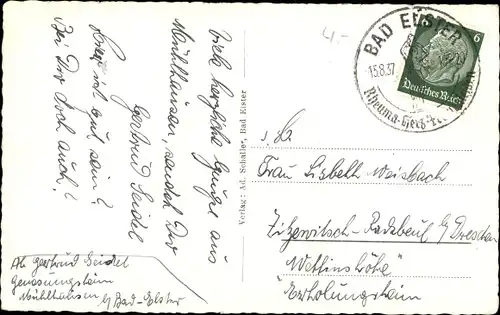 4.-
BAD ELSTER
15.8.37
6
Deutsches Reich
Viele herzliche Grüße aus
Mühlhausen, sendet Dir
Gertrud Seidel
gut sein?
Bei Dir doch auch?
Verlag: Ad. Schaller, Bad Elster
Frau Lisbeth Weisbach
Zitzewitsch-Radebeul b/ Dresden
"Wettinshöhe"
Erholungsheim
Abs Gertrud Seidel
Genesungsheim
Mühlhausen b/ Bad-Elster